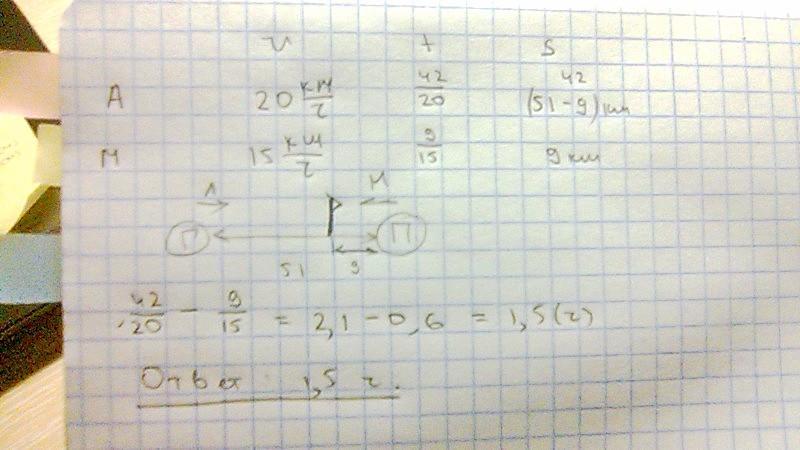 v t s
А 20 км/ч 42/20 42 (51-9) км
М 15 км/ч 9/15 9 км
А М
П П
51 9
42/20 - 9/15 = 2,1 - 0,6 = 1,5 (ч)
Ответ: 1,5 ч.